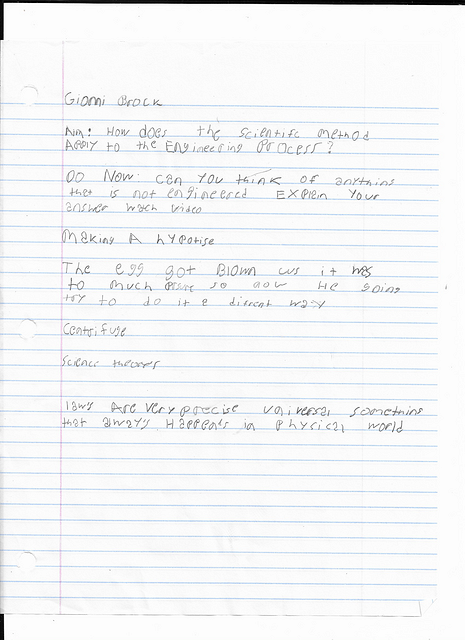 Gionni Brock
Aim: How does the scientific method
Apply to the Engineering Process?
DO Now: can you think of anything
that is not engineered Explein your
answer wach video
Making A hypotise
The egg got Blown cus it was
to much so now He going
try to do it a diferent way
Centrifuge
science theorys
laws Are very precise universal something
that always Happens in physical world